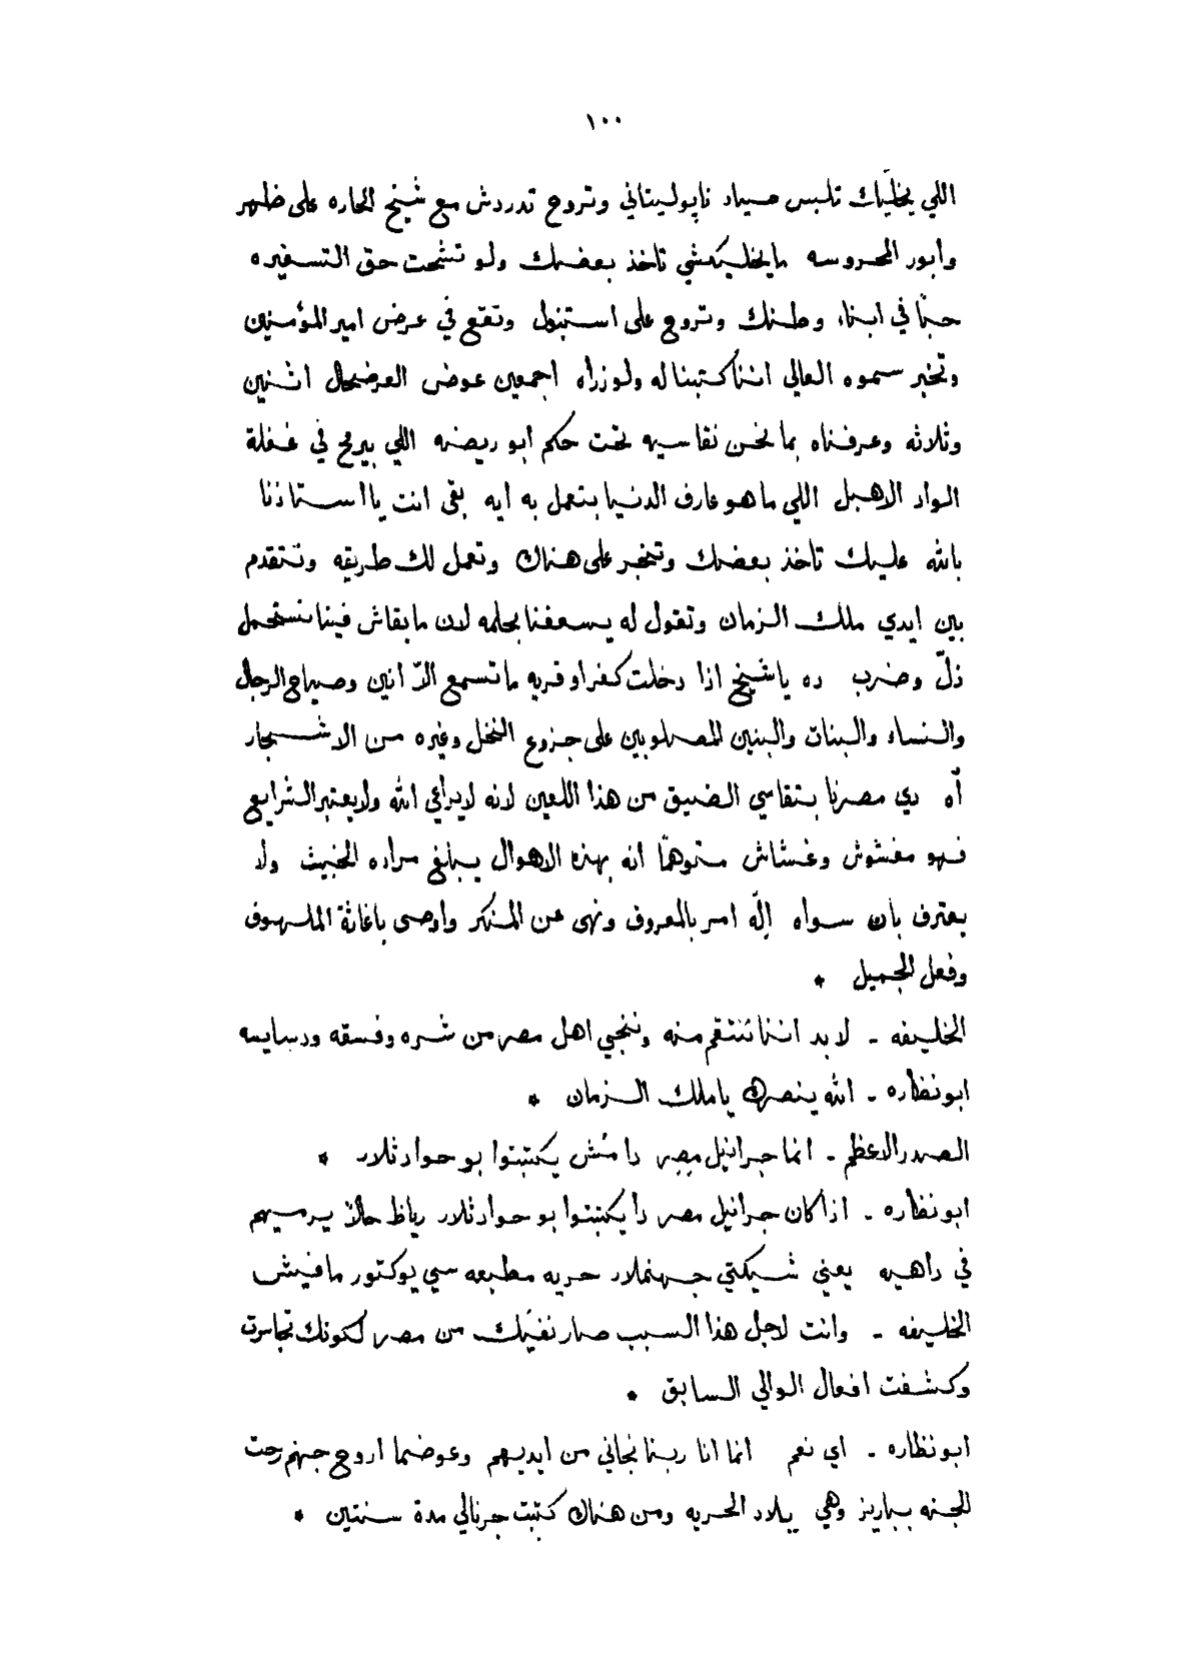 ١٠٠
اللي يخلّيك تلبس صياد ناپوليتاني وتروح تدردش مع شيخ الحاره على ظهر
وابور المحروسه مايخليكشي تاخذ بعضك ولو تشحت حق التسفيره
حبّا في ابناء وطنك وتروح على استنبول وتقع في عرض امير المؤمنين
وتخبر سموه العالي اننا كتبنا له ولوزراه اجمعين عوض العرضحال اثنين
وثلاثه وعرفناه بما نحن نقاسيه تحت حكم ابو ريضه اللي بيرمح في غفلة
الواد الاهبل اللي ما هو عارف الدنيا بتعمل به ايه بقى انت يا استاذنا
بالله عليك تاخذ بعضك وتنجر على هناك وتعمل لك طريقه وتتقدم
بين ايدي ملك الزمان وتقول له يسعفنا بحلمه لان ما بقاش فينا نستحمل
ذلّ وضرب ده يا شيخ اذا دخلت كفر او قريه ما تسمع الاّ انين وصياح الرجال
والنساء والبنات والبنين المصلوبين على جزوع النخل وغيره من الاشجار
آه دي مصرنا بتقاسي الضيق من هذا اللعين لانه لا يراعي الله ولا يعتبر الشرايع
فهو مغشوش وغشاش متوهمّا انه بهذه الاهوال يبلغ مراده الخبيث ولا
يعترف بان سواه إلّه امر بالمعروف ونهى عن المنكر واوصى باغاثة الملهوف
وفعل الجميل *
الخليفه - لابد اننا نُنتقم منه وننجي اهل مصر من شره وفسقه ودسايسه
ابونظاره - الله ينصرك يا ملك الزمان *
الصدر الاعظم - انما جرانيل مصر دا مُش يكتبتوا بو حوادثلار *
ابونظاره - اذا كان جرانيل مصر دا يكتبتوا بو حوادثلار رياظ حالاً يرميهم
في داهيه يعني شيكتي جهنملار حريه مطبعه سي يوكتور ما فيش
الخليفه - وانت لاجل هذا السبب صار نفيَك من مصر لكونك تجاسرت
وكشفت افعال الوالي السابق *
ابونظاره - اي نعم انما انا ربنا نجاني من ايديهم وعوضما اروح جهنم رحت
الجنه بباريز وهي بلاد الحريه ومن هناك كتبت جرنالي مدة سنتين *